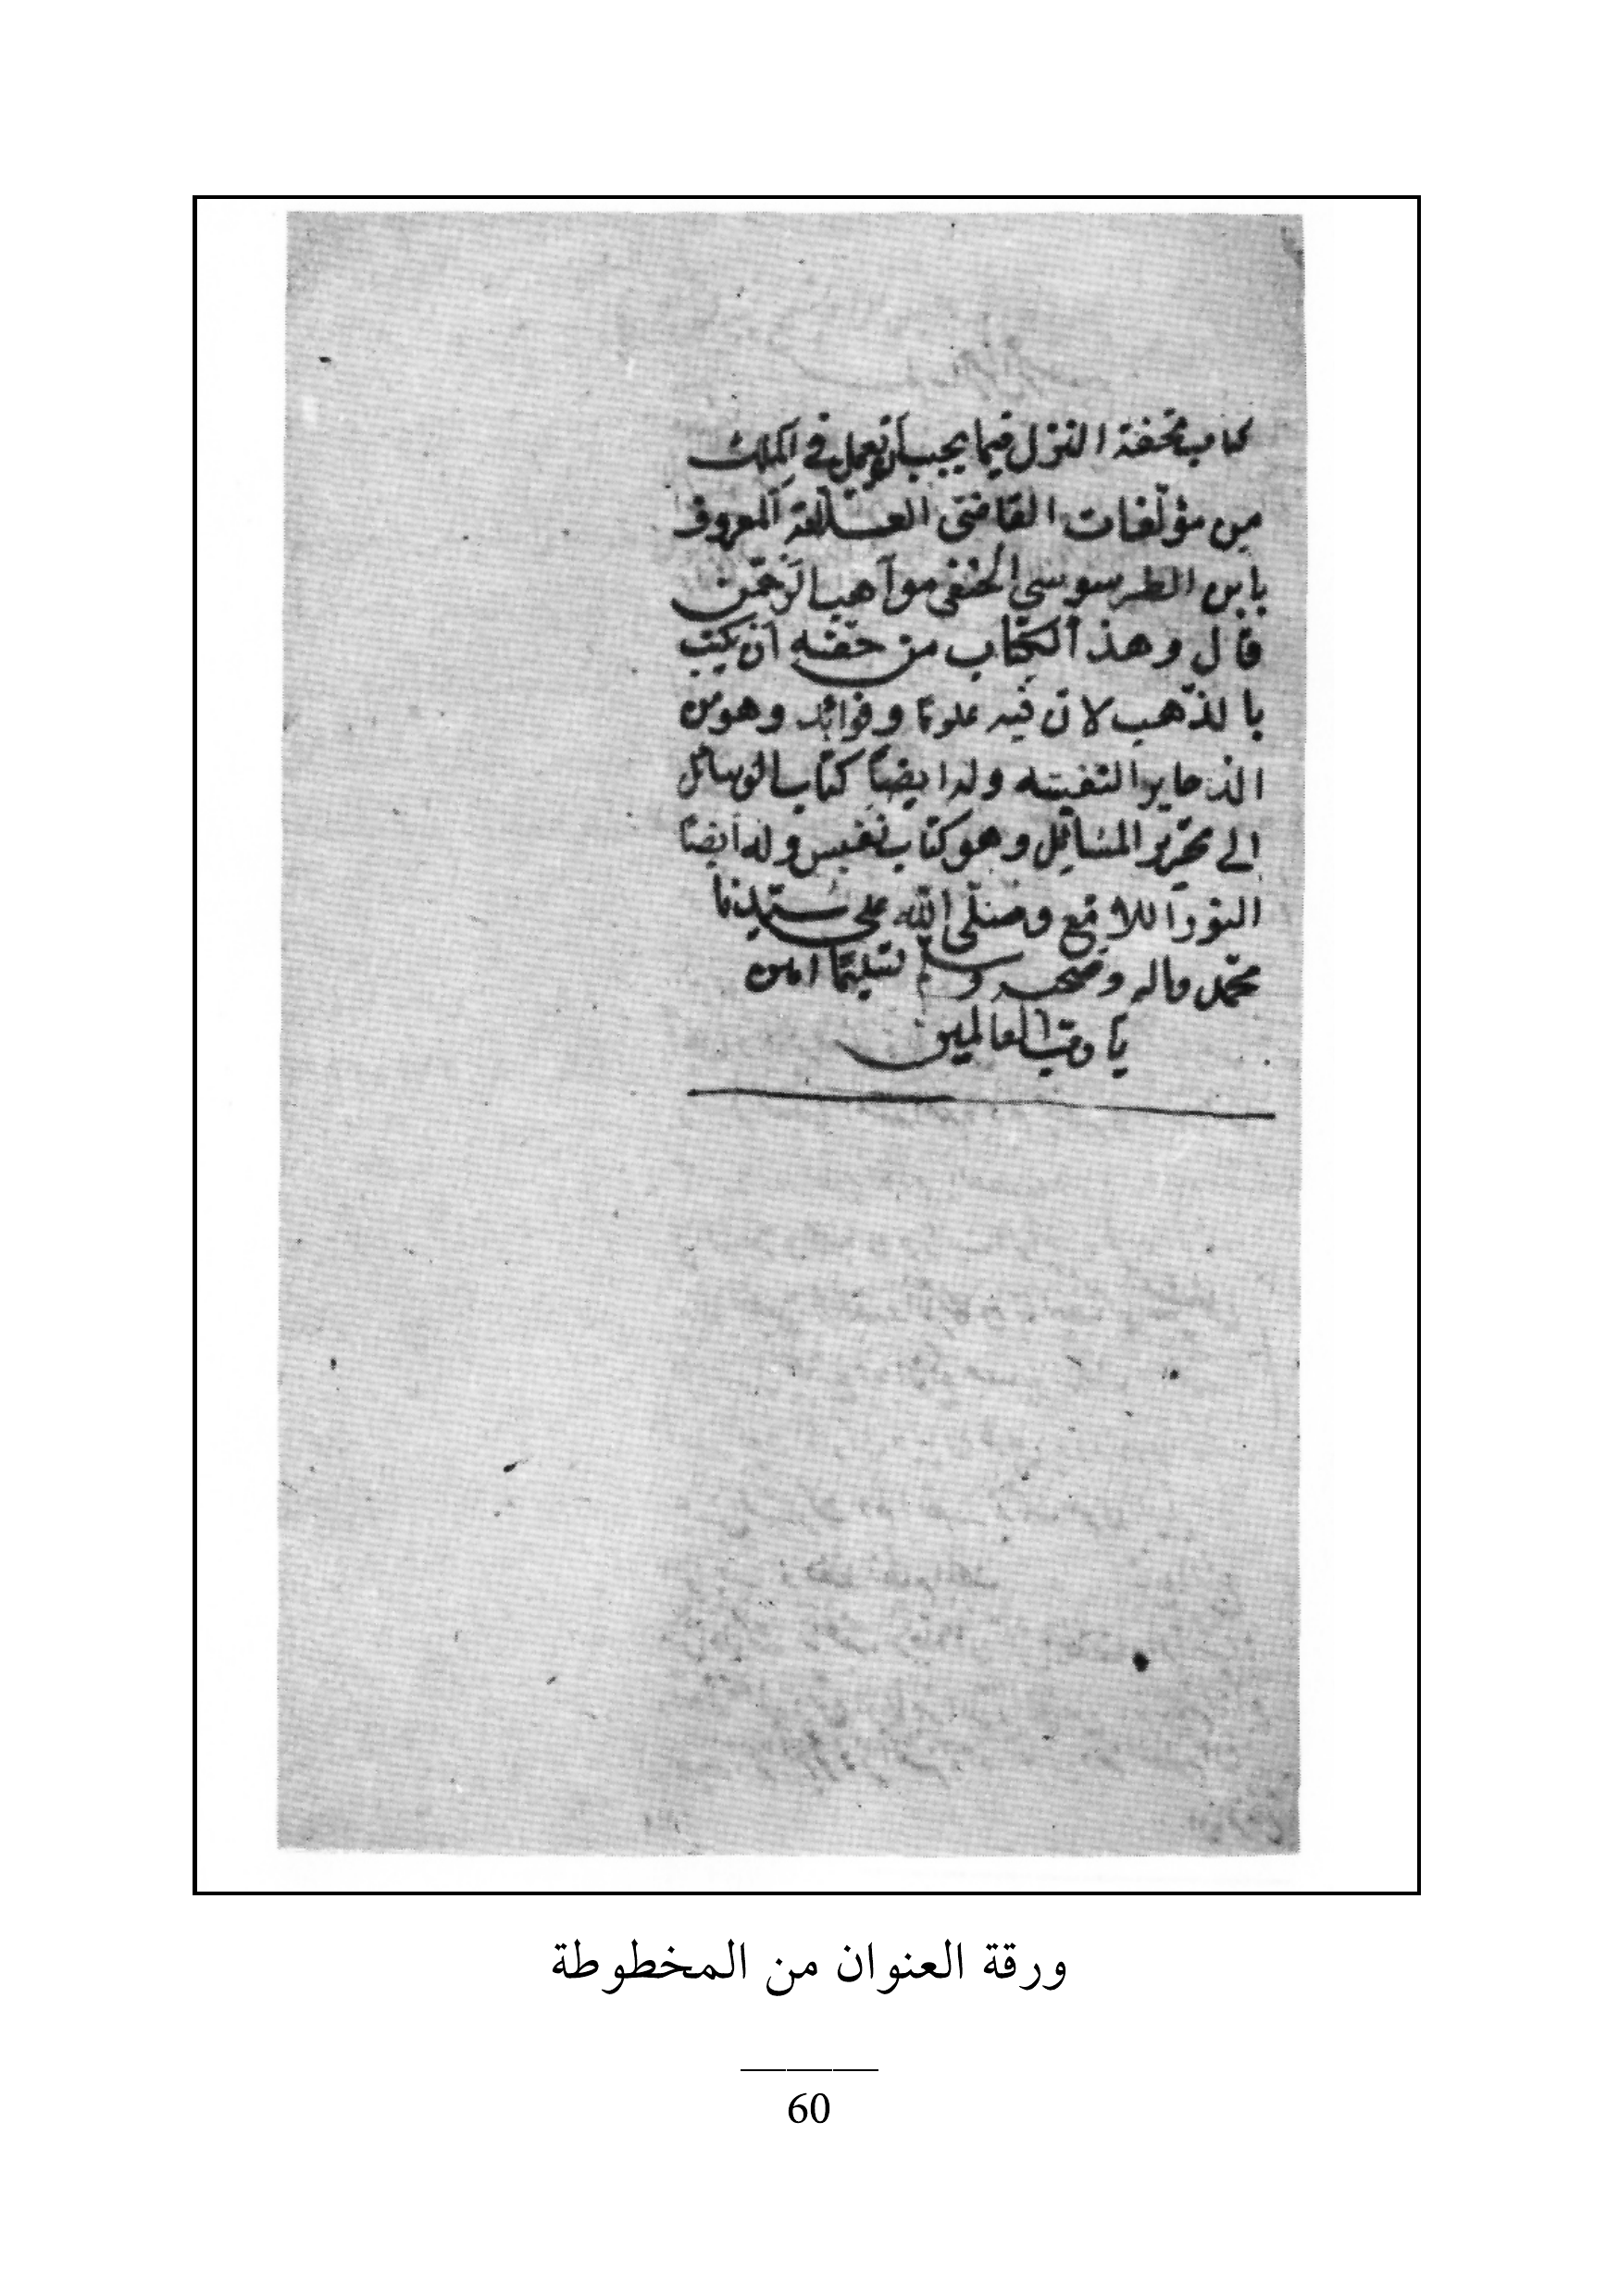 كتاب تحفة الترك فيما يجب أن يعمل في الملك
من مؤلفات القاضي العلامة المعروف
بابن الطرسوسي الحنفي مواهب الرحمن
قال وهذا الكتاب من حقه أن يكتب
بالذهب لان فيه علوما وفوائد وهو من
الذخاير النفيسه وله ايضا كتاب الوسائل
الى تحرير المسائل وهو كتاب نفيس وله أيضا
النور اللامع وصلى الله على سيدنا
محمد واله وصحبه وسلم تسليما امين
يا رب العالمين
ورقة العنوان من المخطوطة
60